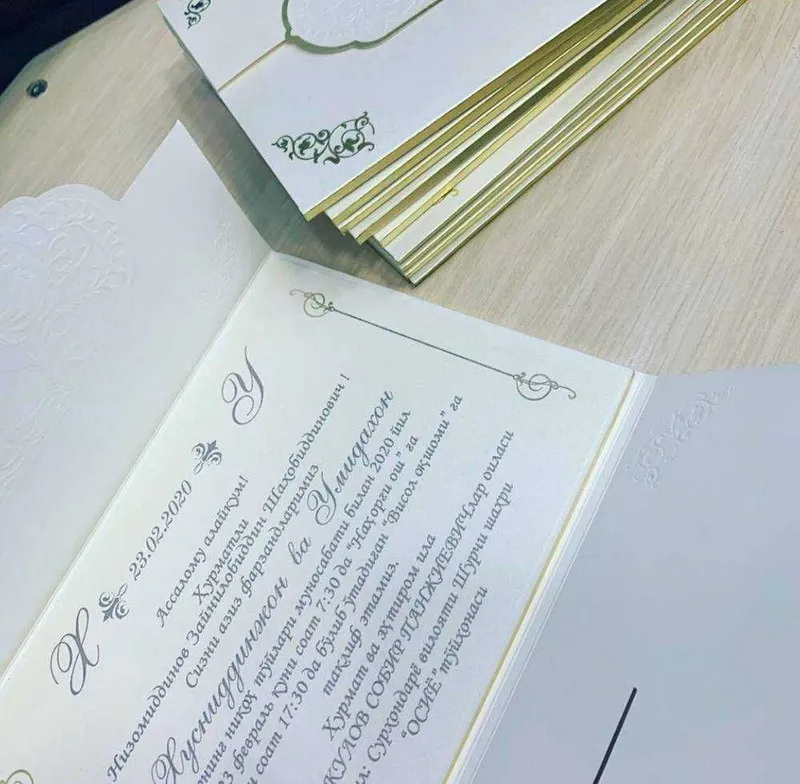 Х 23.02.2020 У
Ассалому алайкум!
Хурматли
Низомиддинов Зайнилобиддин Шахобиддинович !
Сизни азиз фарзандларимиз
Хусниддинжон ва Умидахон
нинг никоҳ тўйлари муносабати билан 2020 йил
23 февраль куни соат 7:30 да "Наҳорги ош" га
соат 17:30 да бўлиб ўтадиган "Висол оқшоми" га
таклиф этамиз.
Хурмат ва эҳтиром ила
КУЛОВ СОБИР ПАНЖИЕВИЧлар оиласи
Сурхондарё вилояти Шўрчи шаҳри
"ОСИЁ" тўйхонаси